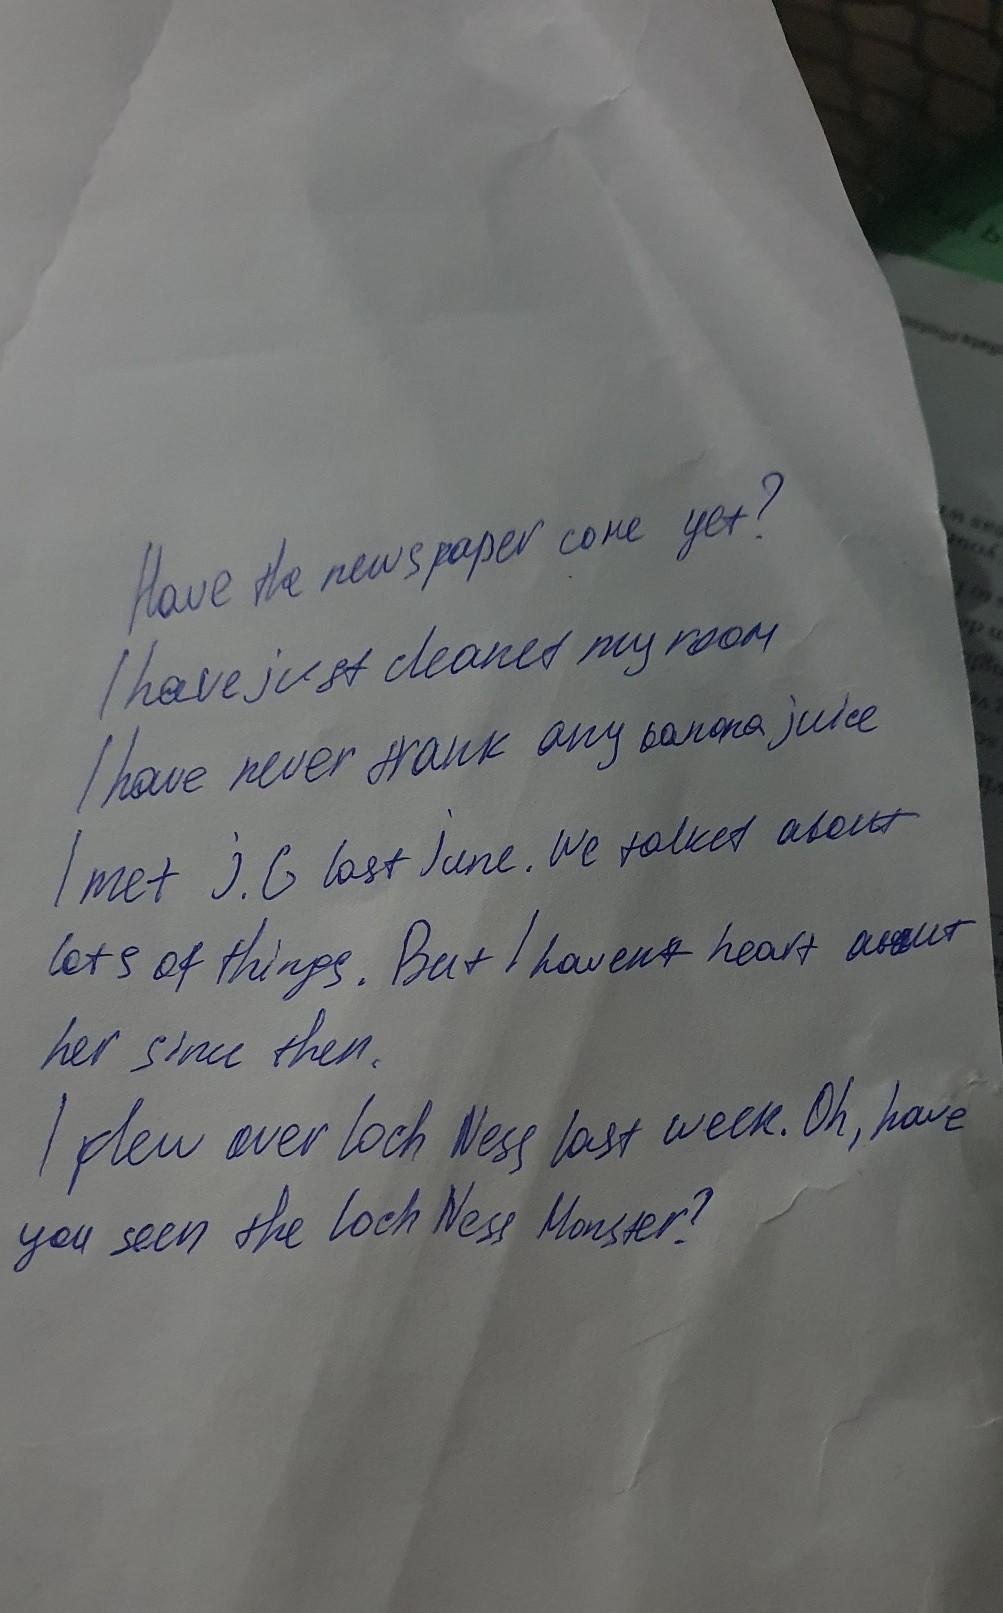 Have the newspaper come yet?
I have just cleanet my room
I have never trank any banana juice
I met J.G last June. We talket about
lots of things. But I havent heart about
her since then.
I plew over Loch Ness last week. Oh, have
you seen the Loch Ness Monster?